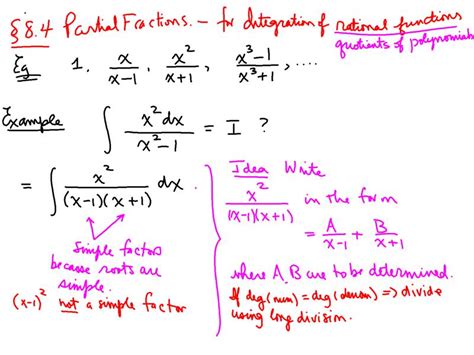 § 8.4 Partial Fractions. – for Integration of rational functions
quotients of polynomials
Eg 1. x/(x-1), x²/(x+1), (x³-1)/(x³+1), ....
Example ∫ x²dx/(x²-1) = I ?
= ∫ x²/((x-1)(x+1)) dx.
simple factors
because roots are
simple.
(x-1)² not a simple factor
Idea Write
x²/((x-1)(x+1)) in the form
= A/(x-1) + B/(x+1)
where A, B are to be determined.
If deg(num) = deg(denom) => divide
using long division.